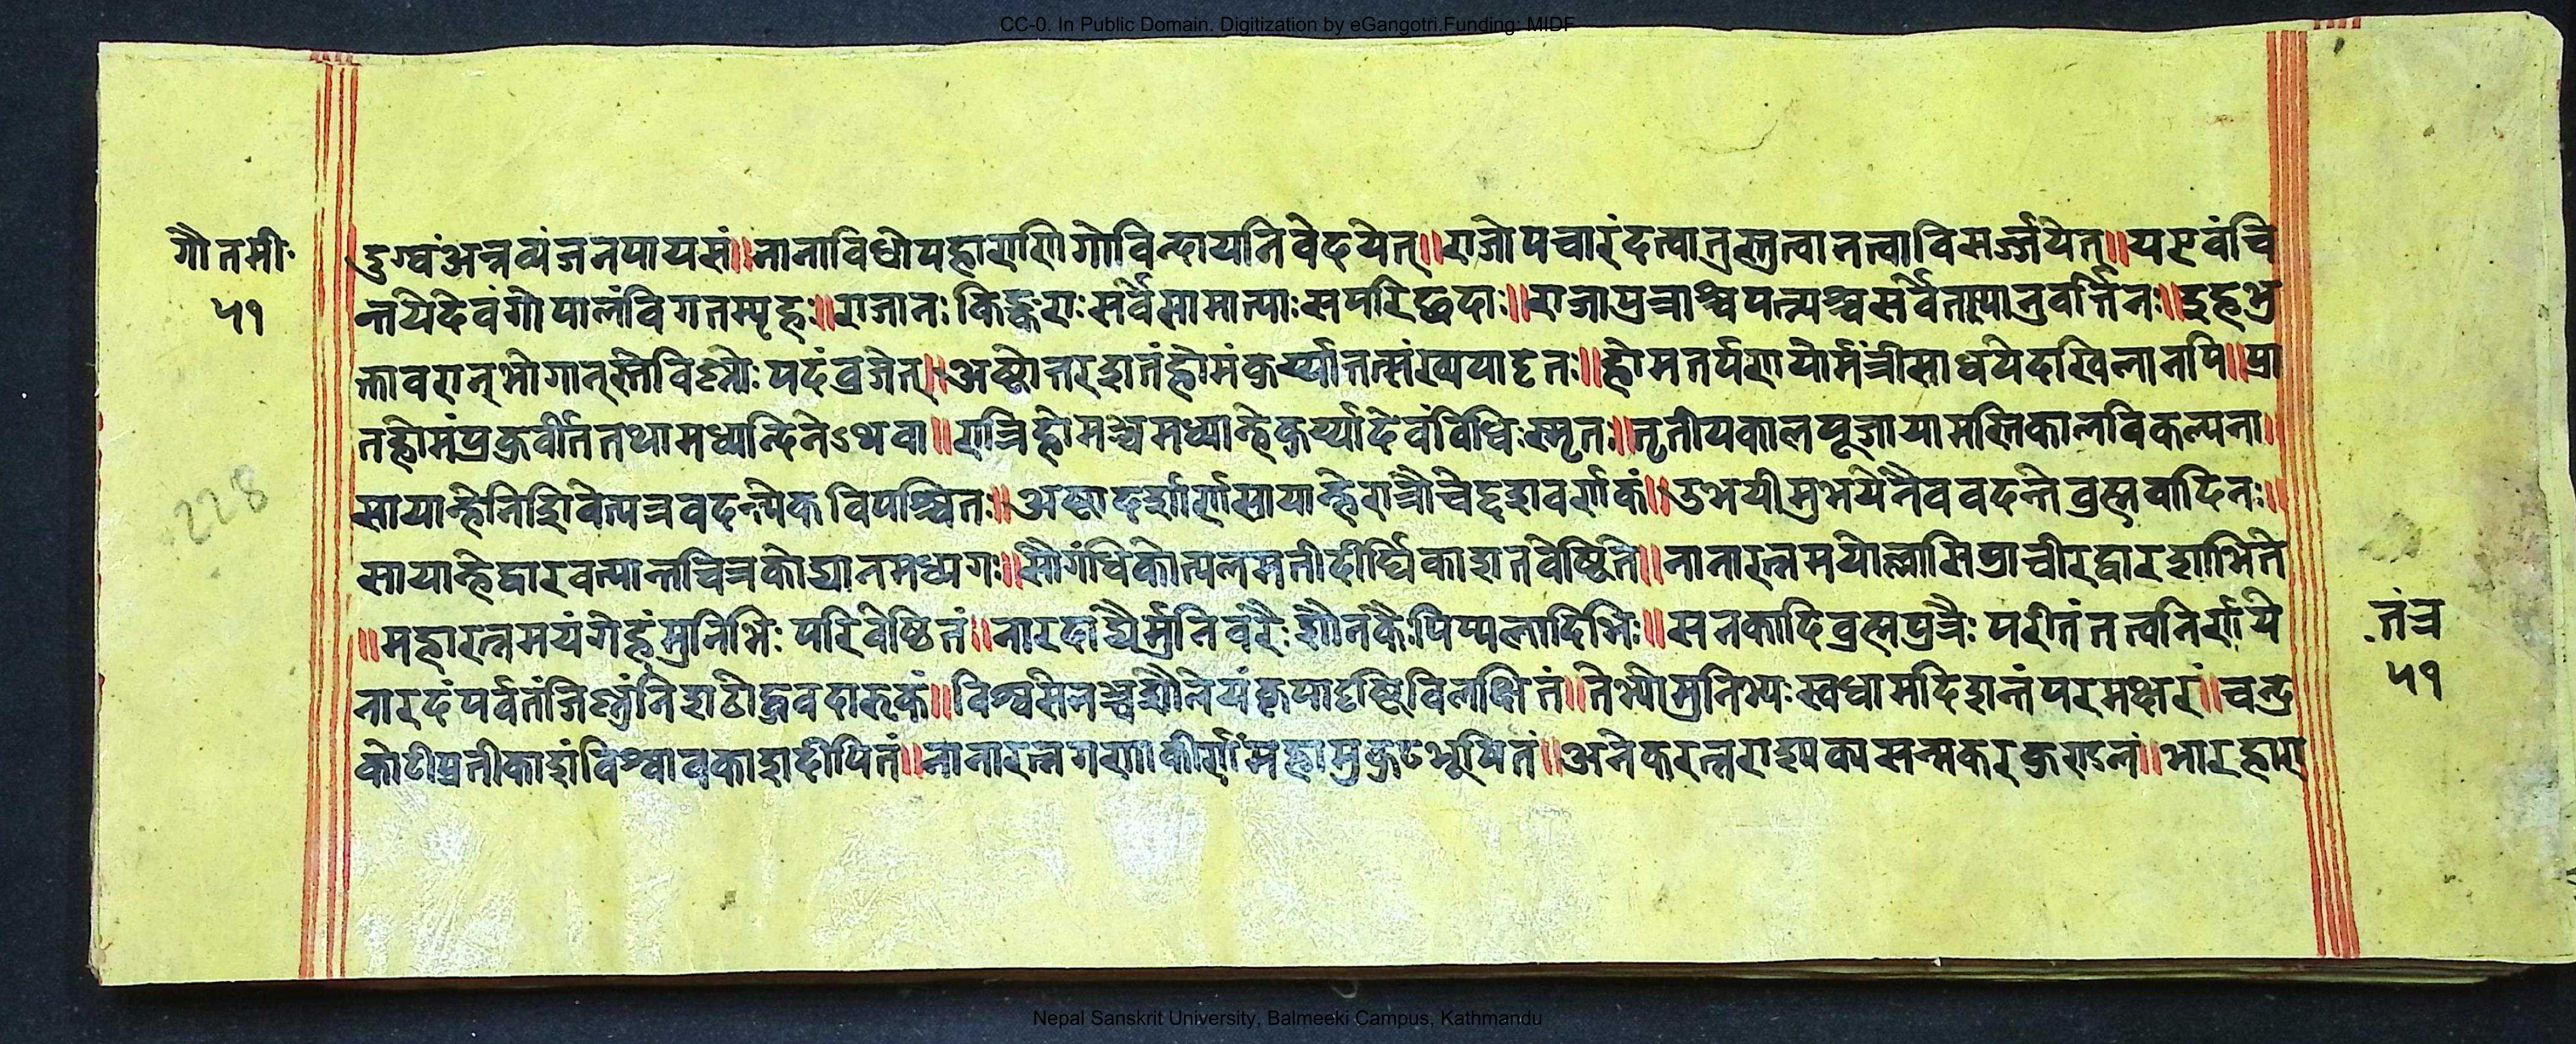 CC-0. In Public Domain. Digitization by eGangotri.Funding: MIDF
गौतमी॰
५१
दुग्धंअन्नव्यंजनपायसं॥नानाविधोपहाराणिगोविन्दायनिवेदयेत्॥राजोपचारंदत्वातुस्तुत्वानत्वाविसर्ज्जयेत्॥यएवंचि
न्तयेदेवंगोपालंविगतस्पृहः॥राजानःकिङ्कराःसर्वेसामात्याःसपरिछदाः॥राजापुत्राश्चपत्न्यश्चसर्वेतस्यानुवर्त्तिनः॥इहभु
क्तावरान्भोगान्स्तेविश्नोःपदंव्रजेत्॥अष्टोत्तरशतंहोमंकुर्य्यात्तत्संख्ययादृतः॥होमतर्पणयोर्मंत्रीसाधयेदखिलानपि॥प्रा
तर्होमंप्रकुर्वीततथामध्यन्दिनेऽथवा॥रात्रिहोमञ्चमध्यान्हेकुर्य्यादेवंविधिःस्मृतः॥तृतीयकालपूजायामस्तिकालविकल्पना॥
सायान्हेनिशिवेत्यत्रवदन्त्येकविपश्चितः॥अष्टादशार्णंसायान्हेरात्रौचेद्दशवर्णकं॥उभयीमुभयेनैववदन्तेब्रह्मवादिनः॥
सायान्हेद्वारवत्यान्तचित्रकोद्यानमध्यगः॥सौगंधिकोत्पलमतीदीर्घिकाशतवेष्टिते॥नानारत्नमयोल्लासिप्राचीरद्वारशोभिते
॥महारत्नमयंगेहंमुनिभिःपरिवेष्टितं॥नारदाद्यैर्मुनिवरैःशौनकैःपिप्पलादिभिः॥सनकादिब्रह्मपुत्रैःपरीतंतत्वनिर्णये
नारदंपर्वतंजिश्नुंनिशठोद्धवदारुकं॥विश्वसेनञ्चशैनेयंकृपादृष्टिविलक्षितं॥तेभ्योमुनिभ्यःस्वधामदिशन्तंपरमक्षरं॥चन्द्र
कोटीप्रतीकाशंविश्वावकाशदीपितं॥नानारत्नगणाकीर्णंमहामुकुटभूषितं॥अनेकरत्नसन्मकरकुण्डलं॥भारहारा
तंत्र
५१
228
Nepal Sanskrit University, Balmeeki Campus, Kathmandu